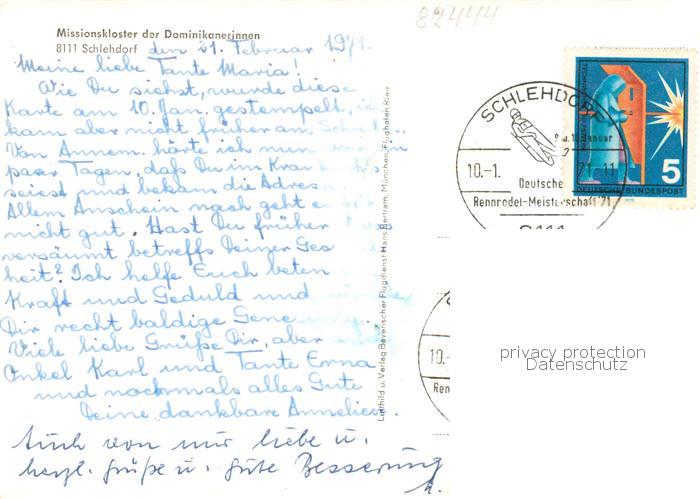 82444
Missionskloster der Dominikanerinnen
8111 Schlehdorf
den 21. Februar 1971.
Meine liebe Tante Maria!
Wie Du siehst, wurde diese
Karte am 10. Jan. gestempelt,
kam aber nicht früher am
Von Annem hörte ich nun
paar Tagen, daß Du im
seiest und bekam die Adres
Allem Anschein nach geht e
nicht gut. Hast Du früher
versäumt betreffs Deiner Ges
heit? Ich helfe Euch beten
Kraft und Geduld und
Dir recht baldige
Viele liebe Grüße Dir, aber
Onkel Karl und Tante Erna
und nochmals alles Gute
Deine dankbare Annelies
Auch von mir liebe u.
herzl. Grüße u. gute Besserung
Luftbild u. Verlag Bayerischer Flugdienst Hans Bertram, München, Flughafen Riem
SCHLEHDORF
9.u.10. Januar
10.-1. 71-11
Deutsche
Rennrodel-Meisterschaft '71
8111
5
DEUTSCHE BUNDESPOST
10.-
Ren
privacy protection
Datenschutz